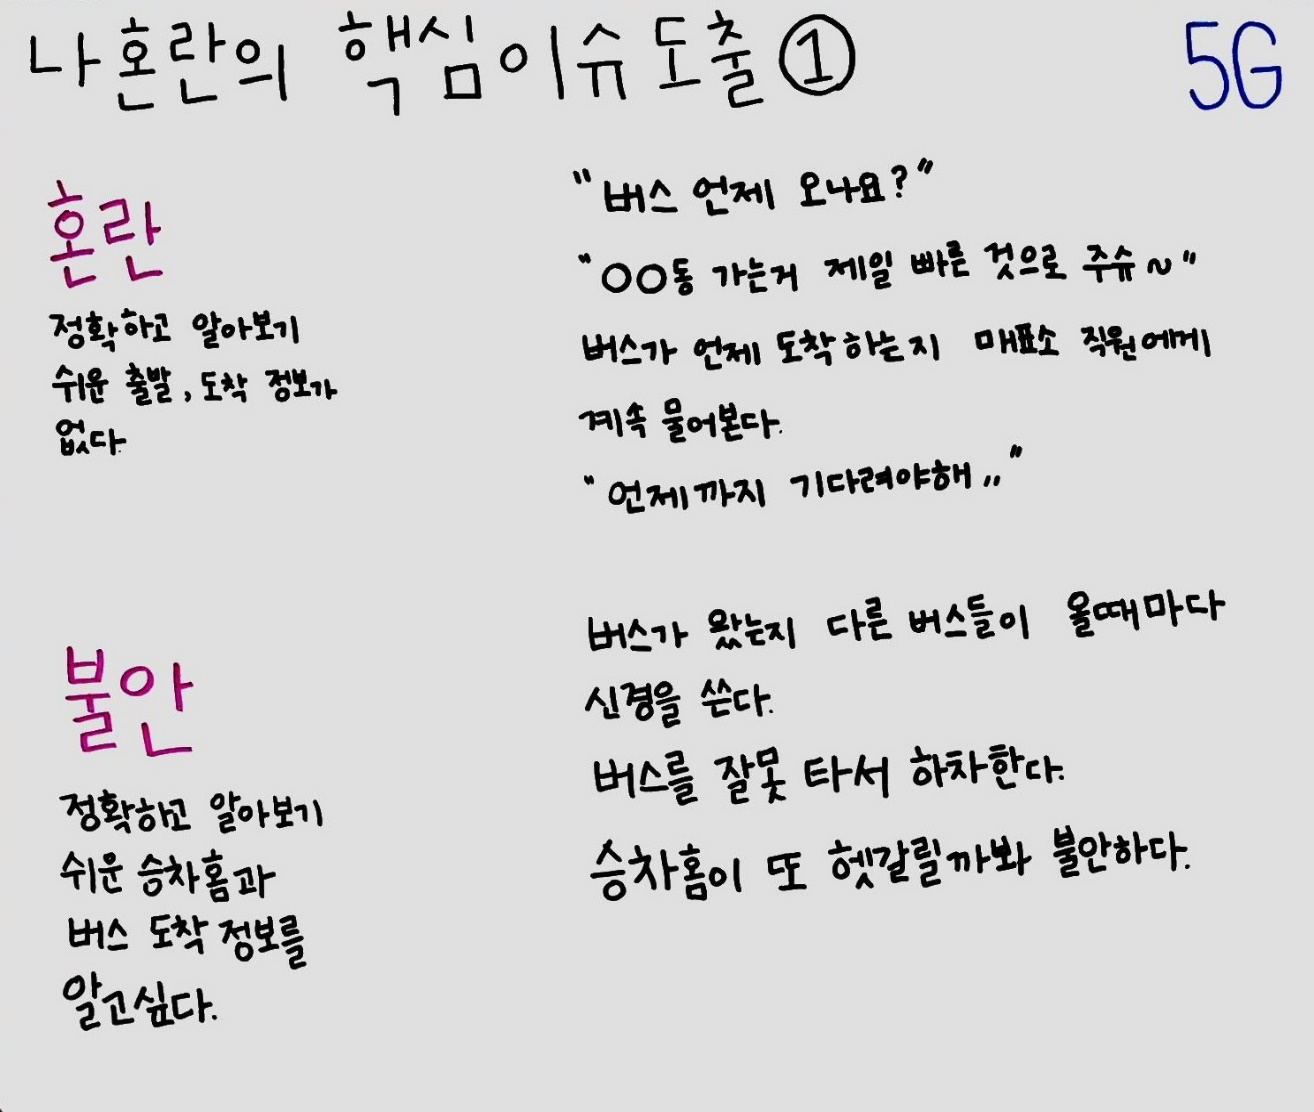 나혼란의 핵심이슈도출①
5G
혼란
정확하고 알아보기
쉬운 출발, 도착 정보가
없다.
"버스 언제 오나요?"
"OO동 가는거 제일 빠른 것으로 주슈~"
버스가 언제 도착하는지 매표소 직원에게
계속 물어본다.
"언제까지 기다려야해.."
불안
정확하고 알아보기
쉬운 승차홈과
버스 도착 정보를
알고싶다.
버스가 왔는지 다른 버스들이 올때마다
신경을 쓴다.
버스를 잘못 타서 하차한다.
승차홈이 또 헷갈릴까봐 불안하다.